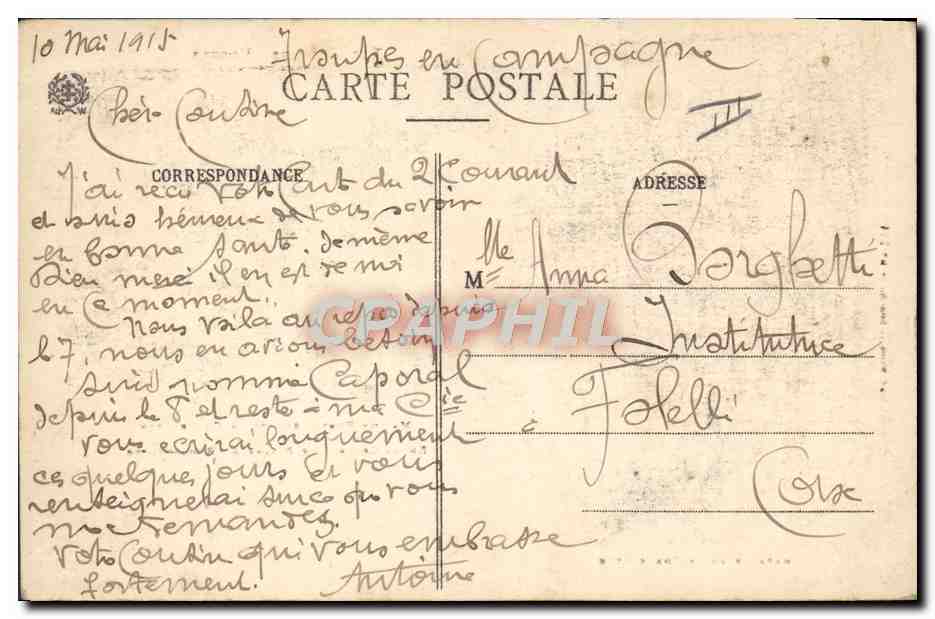 10 Mai 1915
Troupes en Campagne
CARTE POSTALE
Chère Cousine
III
CORRESPONDANCE
ADRESSE
J'ai reçu votre Carte du 2 Courant
et suis héureux de vous savoir
en bonne santé. de même
Bien merci il en est de moi
en ce moment.
Nous voila au repos depuis
le 7, nous en avions besoin
suis nommé Caporal
depuis le 8 et reste à ma Cie
vous ecrirai longuement
ces quelques jours et vous
renseignerai sur ce que vous
me demandez.
Votre Cousin qui vous embrasse
fortement.
Antoine
Mlle Anna Borghetti
Institutrice
à Folelli
Corse
CPAPHIL